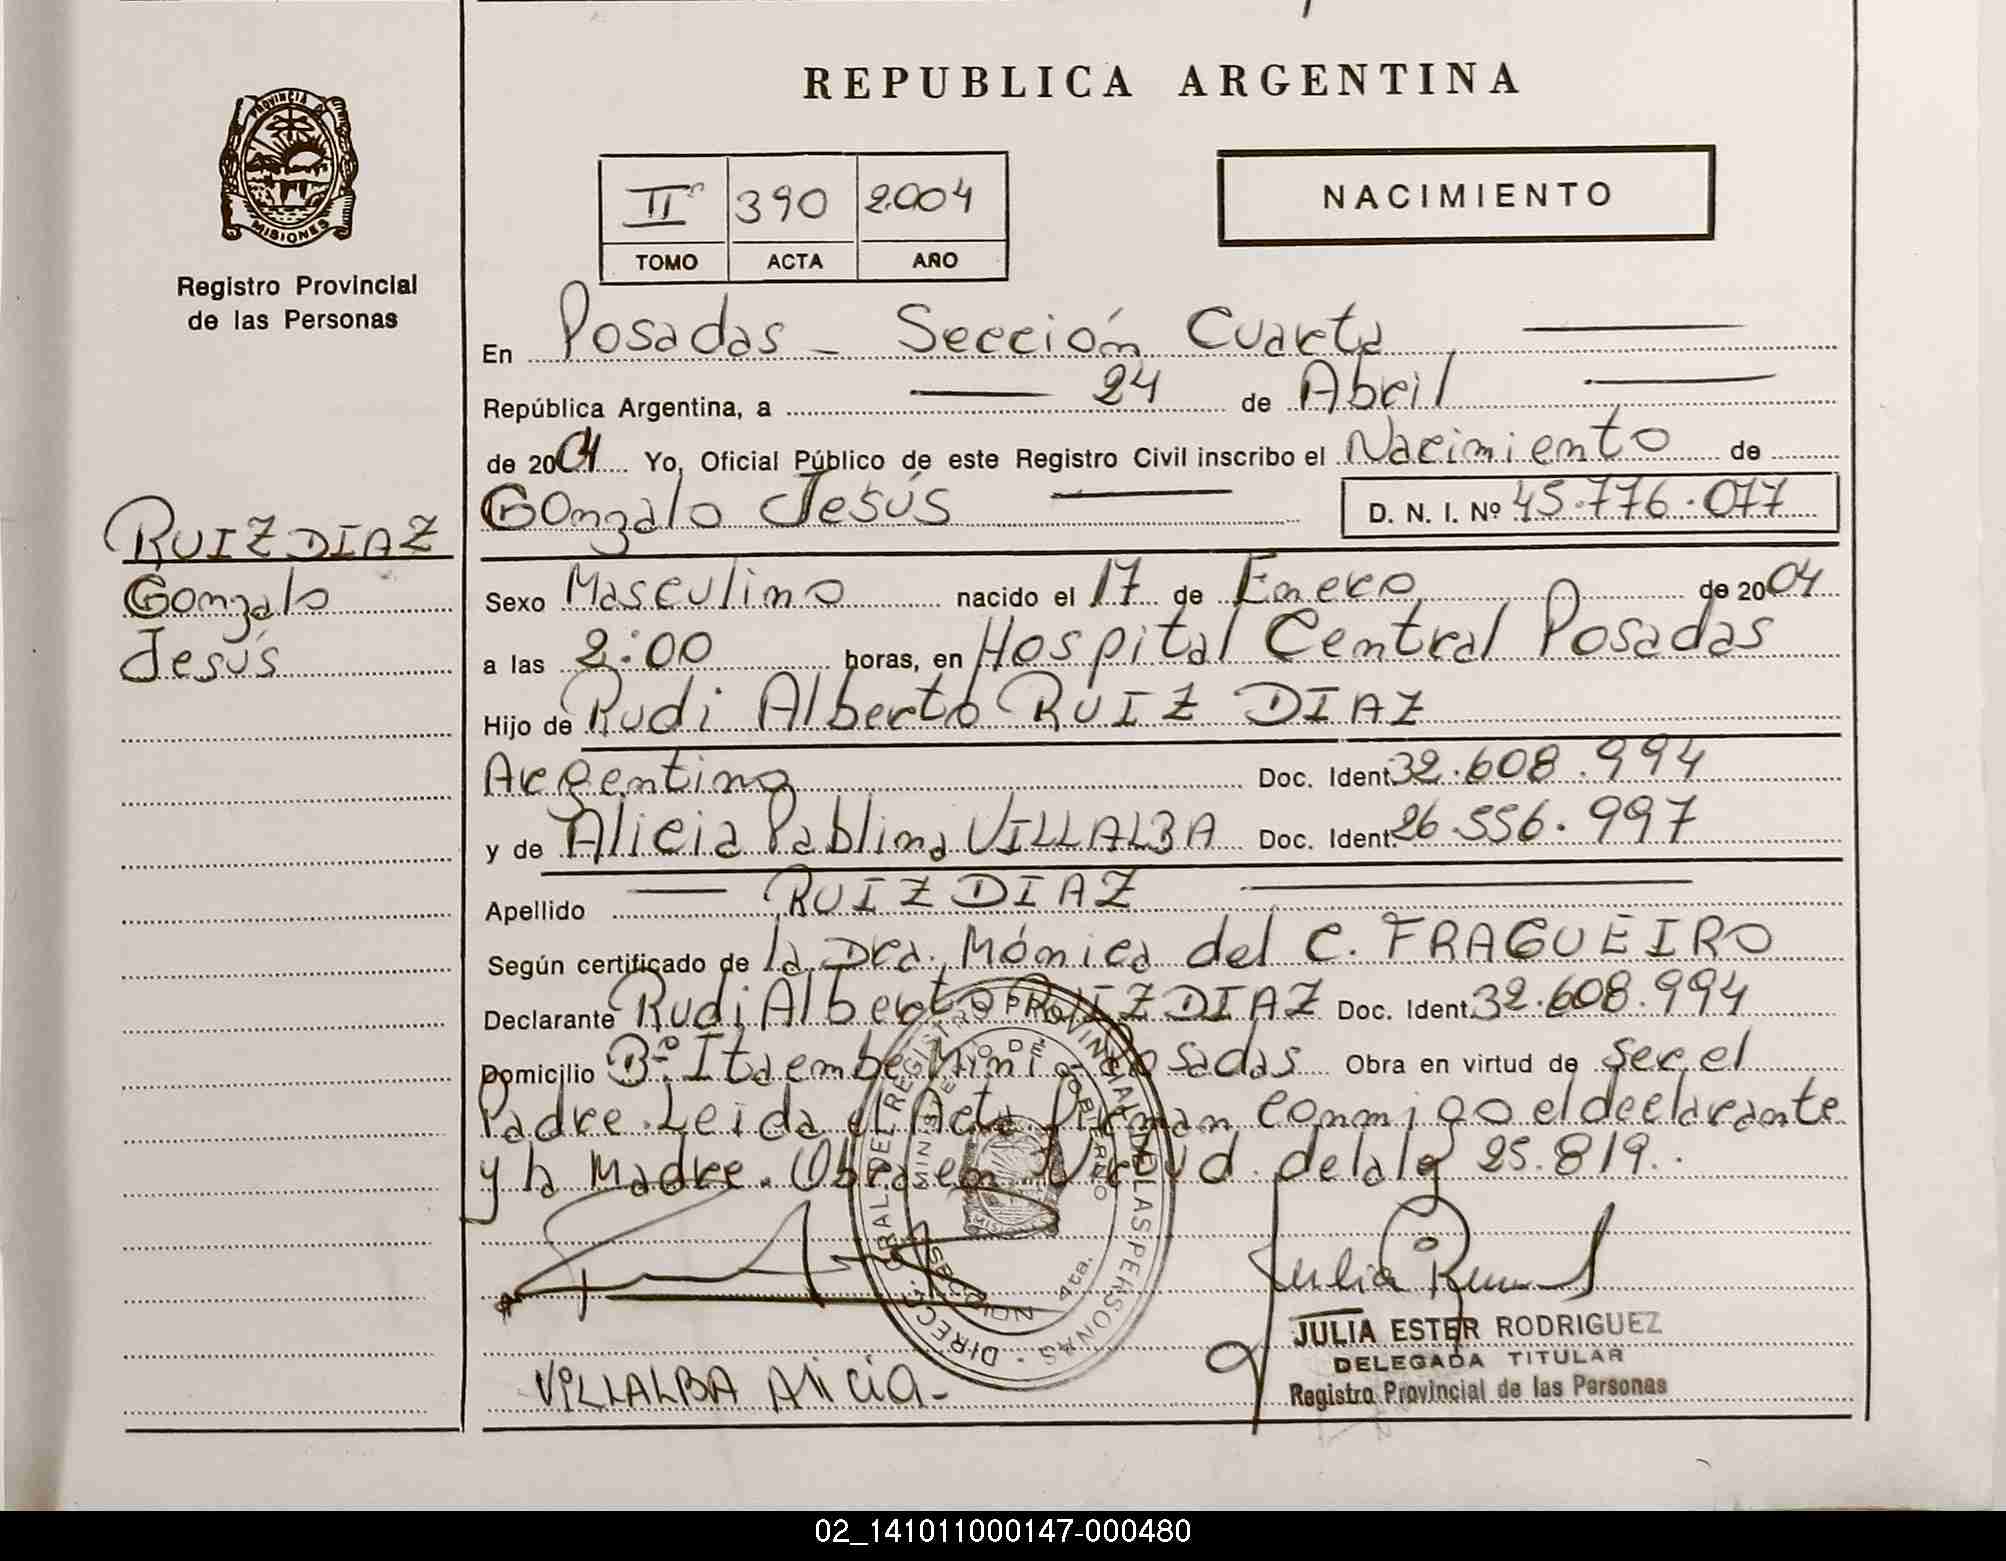 REPUBLICA ARGENTINA
PROVINCIA DE
MISIONES
Registro Provincial
de las Personas
IIº 390 2004
TOMO ACTA AÑO
NACIMIENTO
En Posadas - Sección Cuarta
República Argentina, a 24 de Abril
de 2004 Yo, Oficial Público de este Registro Civil inscribo el Nacimiento de
Gonzalo Jesús D. N. I. Nº 45.776.077
RUIZ DIAZ
Gonzalo
Jesús
Sexo Masculino nacido el 17 de Enero de 2004
a las 2:00 horas, en Hospital Central Posadas
Hijo de Rudi Alberto RUIZ DIAZ
Argentino Doc. Ident. 32.608.994
y de Alicia Pablina VILLALBA Doc. Ident. 26.556.997
Apellido RUIZ DIAZ
Según certificado de la Dra. Mónica del C. FRAGUEIRO
Declarante Rudi Alberto RUIZ DIAZ Doc. Ident. 32.608.994
Domicilio Bº Itaembe Mini - Posadas Obra en virtud de ser el
Padre. Leida el Acta firman conmigo el declarante
y la Madre. Obra en Virtud de la ley 25.819.
DIRECC. GRAL DEL REGISTRO PROVINCIAL DE LAS PERSONAS
MINISTERIO DE GOBIERNO
MISIONES
SECCION 4ta.
VILLALBA Alicia-
JULIA ESTER RODRIGUEZ
DELEGADA TITULAR
Registro Provincial de las Personas
02_141011000147-000480